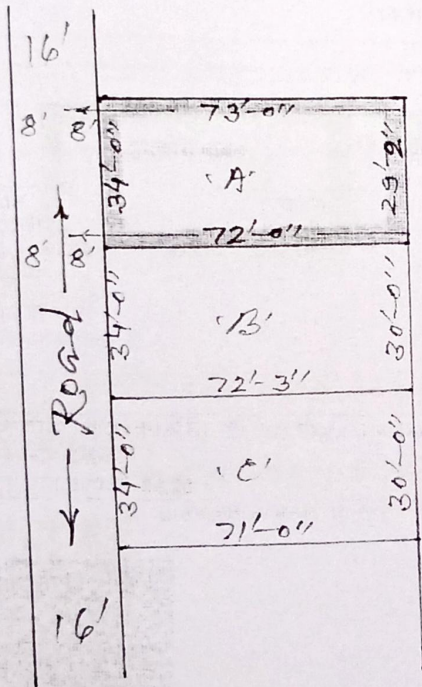 16'
73'-0"
8' 8'
34'-0"
'A'
29'-9"
72'-0"
8' 8'
Road
34'-0"
'B'
30'-0"
72'-3"
34'-0"
'C'
30'-0"
71'-0"
16'